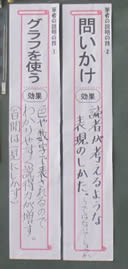 筆者の説明の技 2
問いかけ
効果
読者が考えるような
表現のしかた。
筆者の説明の技 1
グラフを使う
効果
色や数字で表されるので
わかりやすい。説得力が増す。